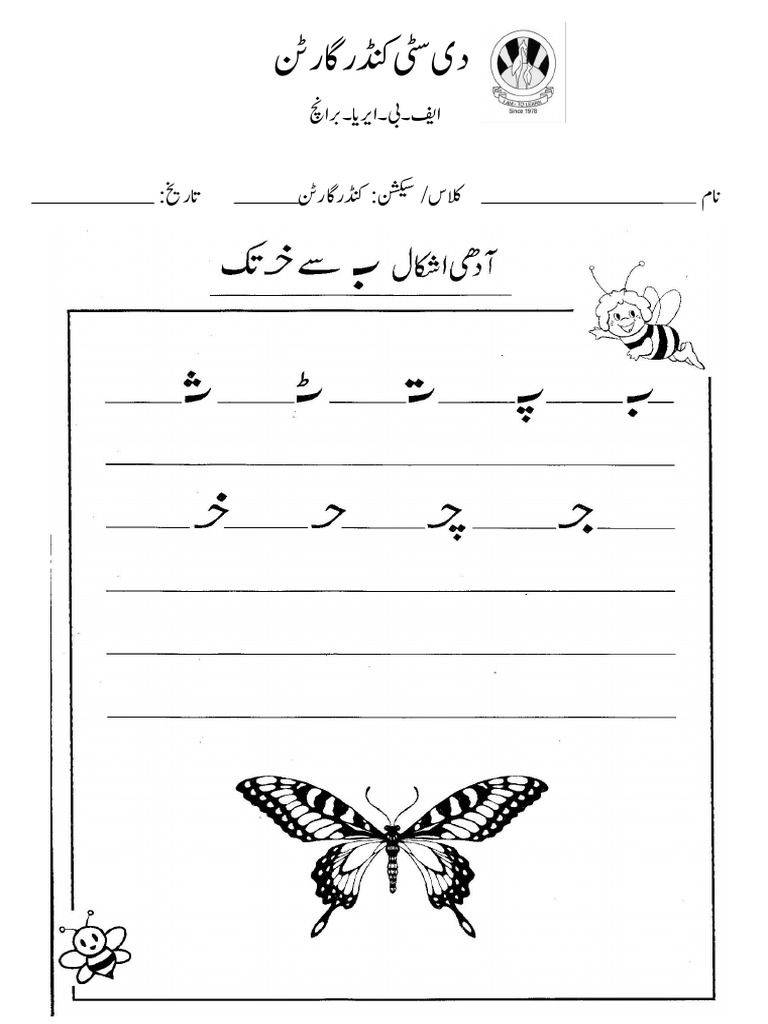 دی سٹی کنڈرگارٹن
LIVE - TO LEARN
Since 1978
ایف۔بی۔ایریا۔برانچ
نام ____________ کلاس/ سیکشن: کنڈرگارٹن ______ تاریخ: ____________
آدھی اشکال بـ سے خـ تک
بـ پـ تـ ٹـ ثـ
جـ چـ حـ خـ